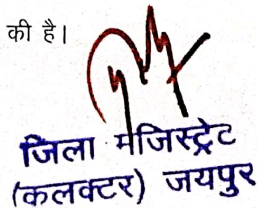 की है।
जिला मजिस्ट्रेट
(कलक्टर) जयपुर